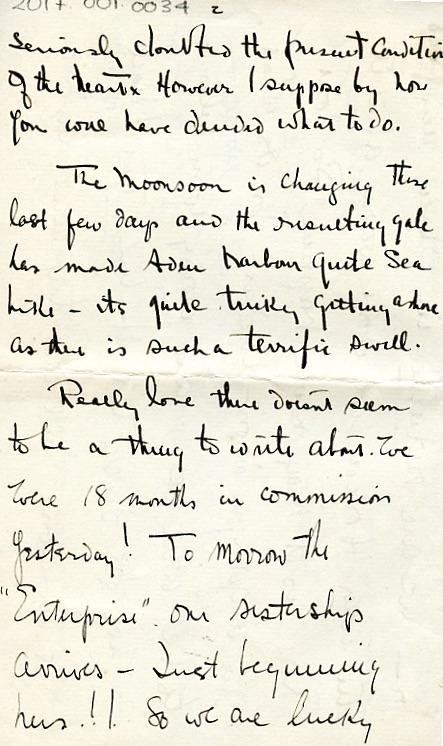 2017.001.0034 2
Seriously doubted the present Condition
Of the heart. However I suppose by now
you will have decided what to do.
The Moonsoon is changing these
last few days and the resulting gale
has made Aden harbour quite Sea
like - its quite tricky getting ashore
as there is such a terrific swell.
Really love there doesn't seem
to be a thing to write about. We
were 18 months in commission
Yesterday! To morrow the
"Enterprise" our sistership
arrives - Just beginning
hers!!! So we are lucky